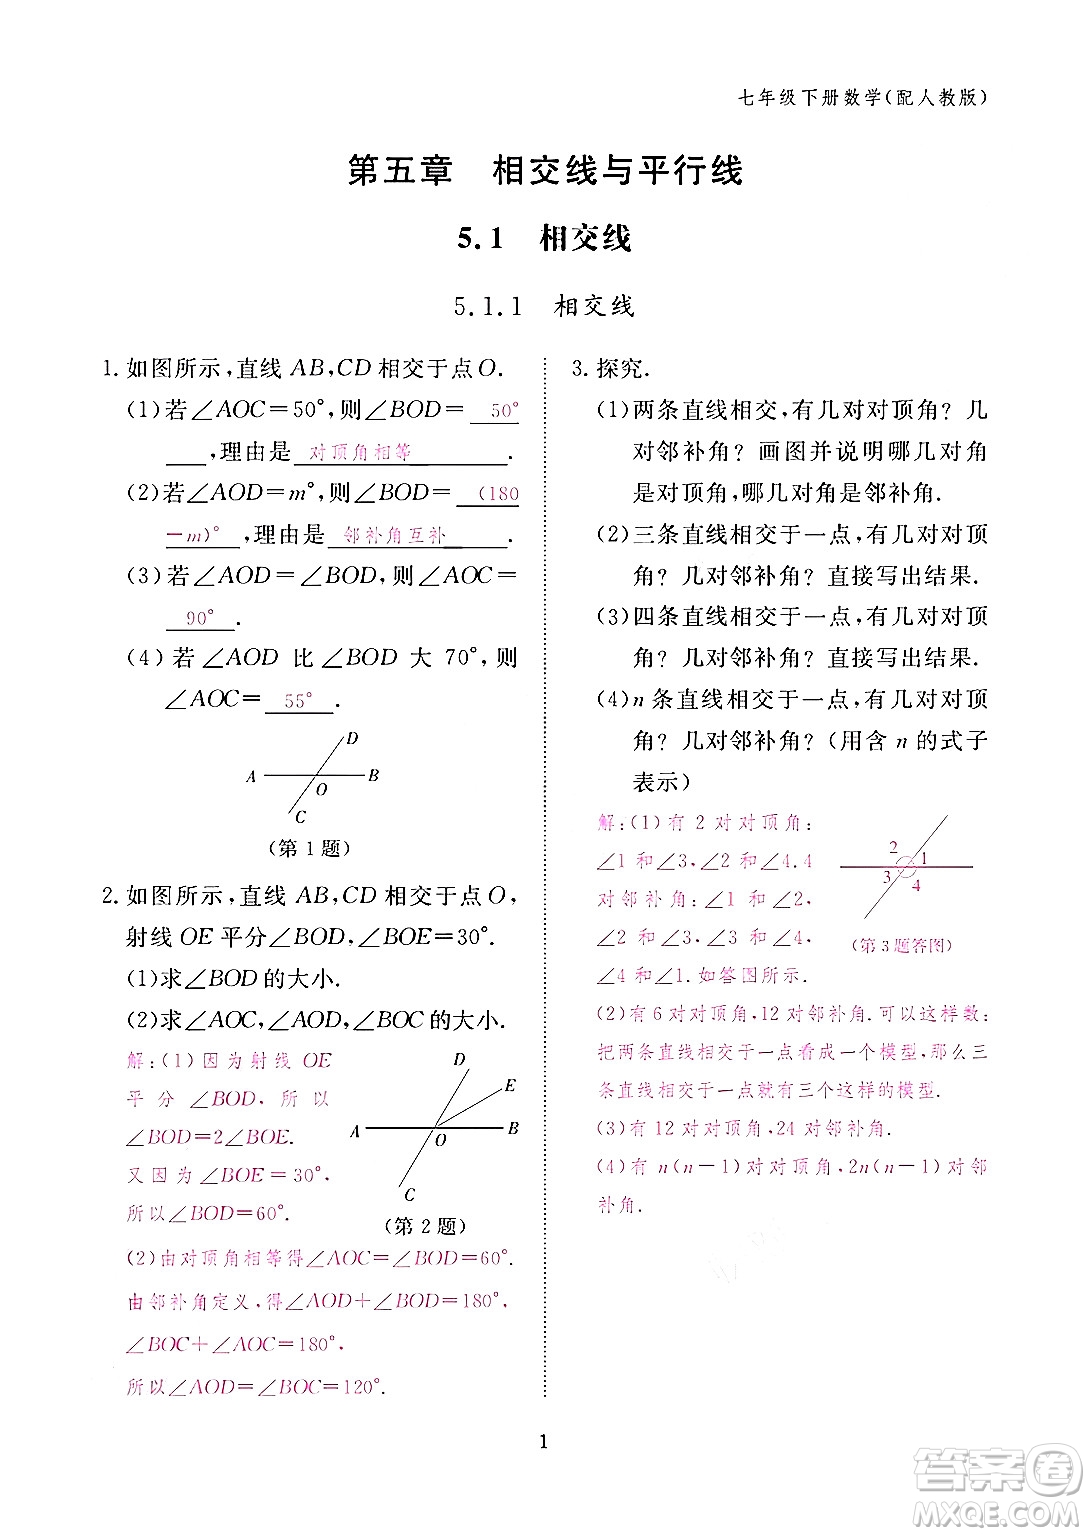 七年级下册数学(配人教版)
第五章 相交线与平行线
5.1 相交线
5.1.1 相交线
1. 如图所示,直线 AB,CD 相交于点 O.
(1)若∠AOC=50°,则∠BOD= 50°
,理由是 对顶角相等 .
(2)若∠AOD=m°,则∠BOD= (180
-m)° ,理由是 邻补角互补 .
(3)若∠AOD=∠BOD,则∠AOC=
90° .
(4)若∠AOD 比∠BOD 大 70°,则
∠AOC= 55° .
D
A
B
O
C
(第 1 题)
2. 如图所示,直线 AB,CD 相交于点 O,
射线 OE 平分∠BOD,∠BOE=30°.
(1)求∠BOD 的大小.
(2)求∠AOC,∠AOD,∠BOC 的大小.
解:(1)因为射线 OE
平分∠BOD,所以
∠BOD=2∠BOE.
又因为∠BOE=30°,
所以∠BOD=60°.
D
E
A
B
O
C
(第 2 题)
(2)由对顶角相等得∠AOC=∠BOD=60°.
由邻补角定义,得∠AOD+∠BOD=180°,
∠BOC+∠AOC=180°.
所以∠AOD=∠BOC=120°.
3. 探究.
(1)两条直线相交,有几对对顶角? 几
对邻补角? 画图并说明哪几对角
是对顶角,哪几对角是邻补角.
(2)三条直线相交于一点,有几对对顶
角? 几对邻补角? 直接写出结果.
(3)四条直线相交于一点,有几对对顶
角? 几对邻补角? 直接写出结果.
(4)n 条直线相交于一点,有几对对顶
角? 几对邻补角? (用含 n 的式子
表示)
解:(1)有 2 对对顶角:
∠1 和∠3,∠2 和∠4. 4
对邻补角:∠1 和∠2,
∠2 和∠3,∠3 和∠4,
∠4 和∠1. 如答图所示.
2
1
3
4
(第 3 题答图)
(2)有 6 对对顶角,12 对邻补角. 可以这样数:
把两条直线相交于一点看成一个模型,那么三
条直线相交于一点就有三个这样的模型.
(3)有 12 对对顶角,24 对邻补角.
(4)有 n(n-1)对对顶角,2n(n-1)对邻
补角.
1
答案卷
MXQE.COM